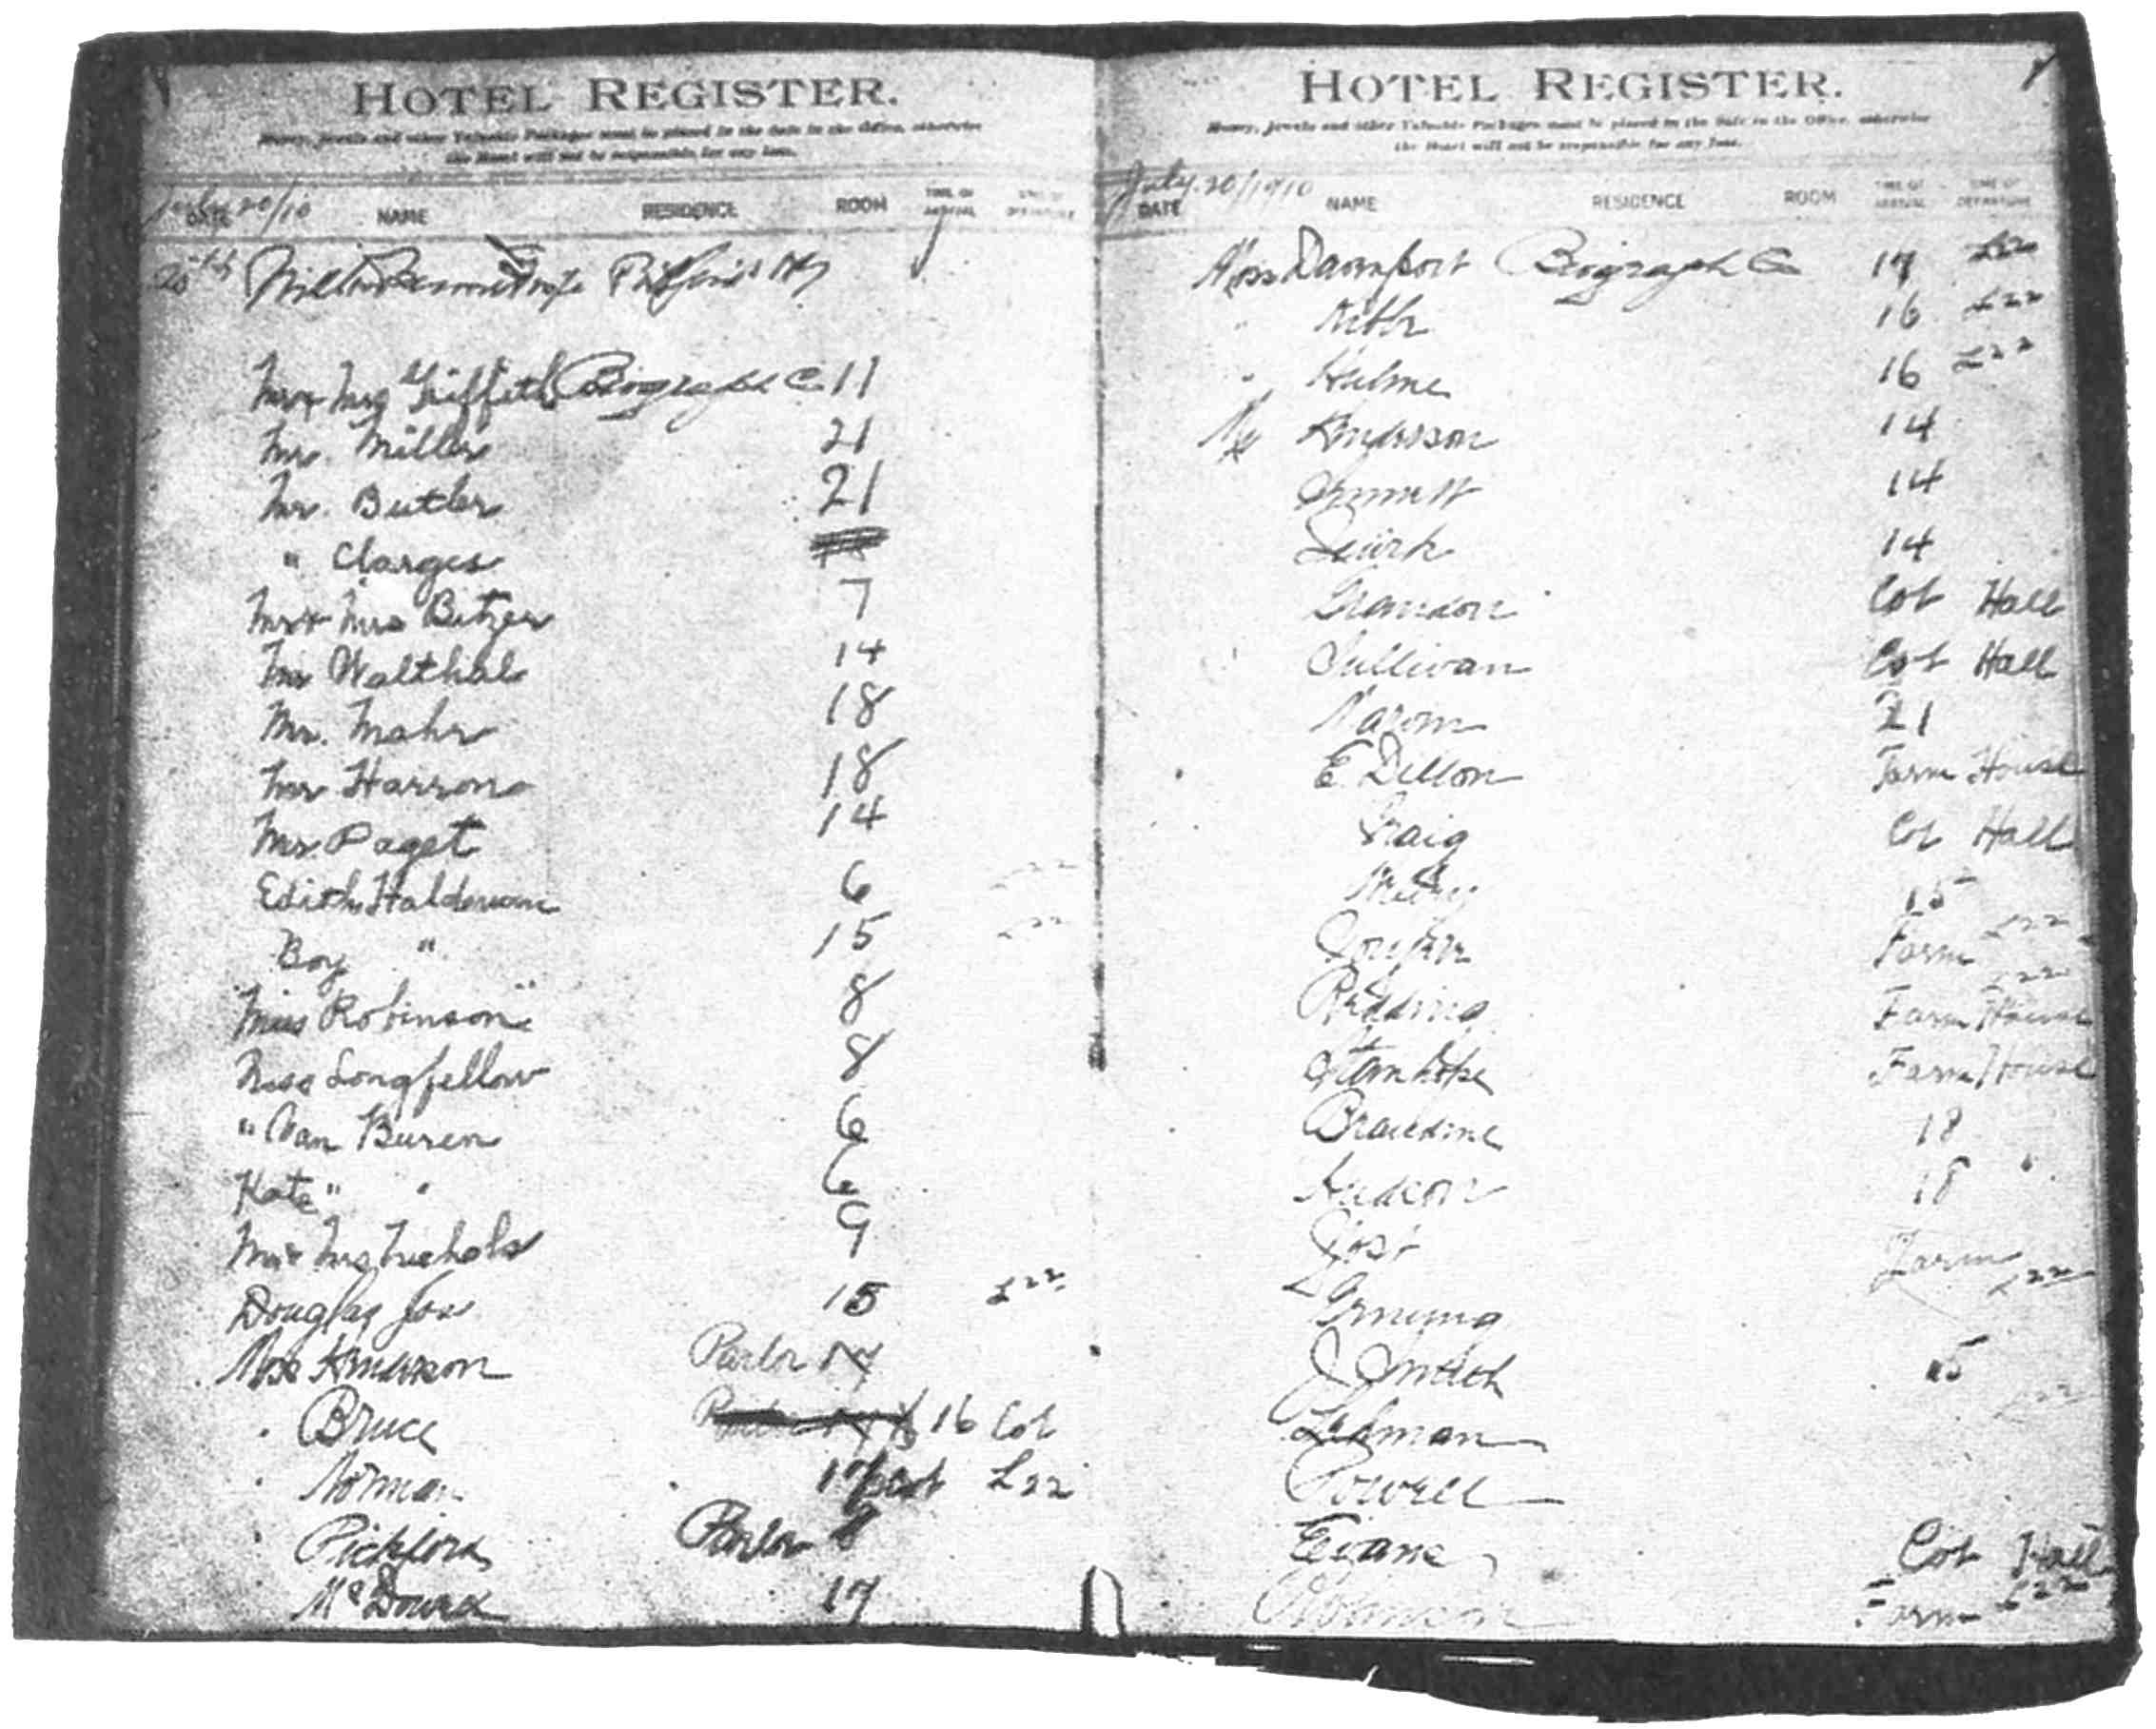 HOTEL REGISTER.
Money, Jewels and other Valuable Packages must be placed in the Safe in the Office, otherwise
the Hotel will not be responsible for any loss.
July 20/10
DATE NAME RESIDENCE ROOM TIME OF ARRIVAL TIME OF DEPARTURE
20th
Mr & Mrs Griffith Biograph Co 11
Mr. Miller 21
Mr. Butler 21
" Clarges
Mr & Mrs Bitzer 7
Mr Walthal 14
Mr. Mahr 18
Mr Harron 18
Mr. Paget 14
Edith Haldeman 6
Boy " 15
Miss Robinson 8
Miss Longfellow 8
" Van Buren 6
Kate " " 6
Mr & Mrs Nichols 9
Douglas Jos 15 L22
Miss Parlor
" Bruce 16 Cot
" Norman 17 Cot L22
" Pickford Parlor 8
McDowell 17
HOTEL REGISTER.
Money, Jewels and other Valuable Packages must be placed in the Safe in the Office, otherwise
the Hotel will not be responsible for any loss.
July. 20/1910
DATE NAME RESIDENCE ROOM TIME OF ARRIVAL TIME OF DEPARTURE
Miss Davenport Biograph Co 17 L22
" 16 L22
" Hulme 16 L22
Mr 14
14
Quirk 14
Grandon Cot Hall
Sullivan Cot Hall
21
E. Dillon Farm House
Craig Cot Hall
15
Farm L22
Redding Farm House L22
Stanhope Farm House
18
Hudson 18
Yost Farm
L22
J Smith 15
Lehman L22
Powell
Evans Cot Hall
Robinson Farm L22